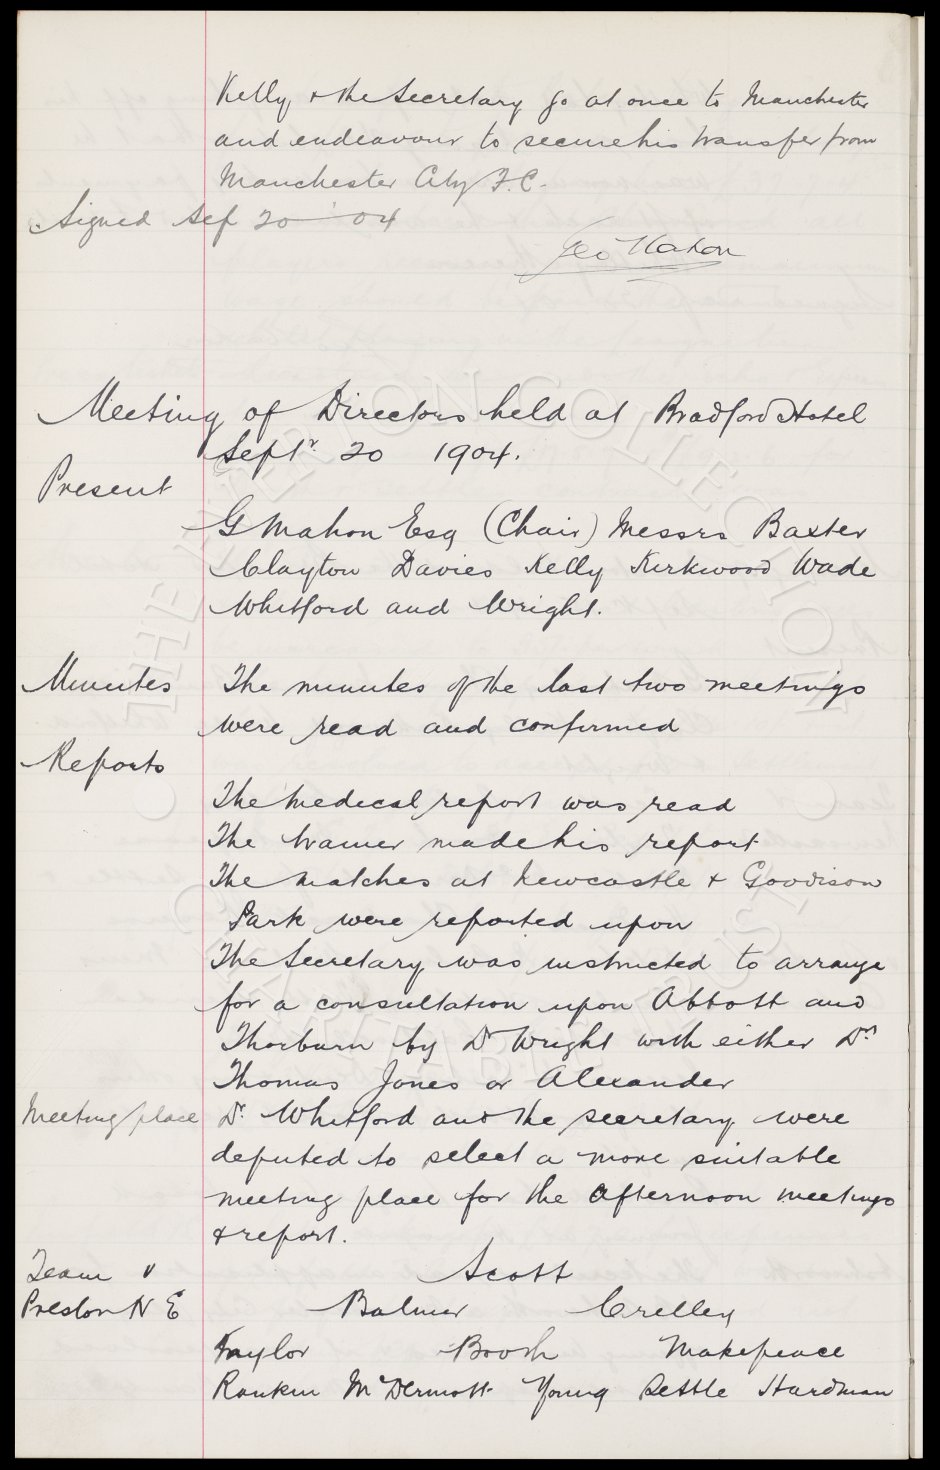 Kelly & the Secretary go at once to Manchester
and endeavour to secure his transfer from
Manchester City F.C.
Signed Sep 20 '04
Geo Mahon
Meeting of Directors held at Bradford Hotel
Septr. 20 1904.
Present
G Mahon Esq (Chair) Messrs Baxter
Clayton Davies Kelly Kirkwood Wade
Whitford and Wright.
Minutes The minutes of the last two meetings
were read and confirmed
Reports
The Medical report was read
The trainer made his report
The matches at Newcastle & Goodison
Park were reported upon
The Secretary was instructed to arrange
for a consultation upon Abbott and
Thorburn by Dr Wright with either Drs
Thomas Jones or Alexander
Meeting place Dr. Whitford and the secretary were
deputed to select a more suitable
meeting place for the afternoon meetings
& report.
Team v Scott
Preston N E Balmer Crelley
Taylor Booth Makepeace
Rankin McDermott Young Settle Hardman
THE EVERTON COLLECTION
CHARITABLE TRUST